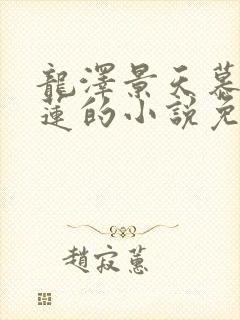 龍澤景天慕
蓮的小說免
趙寂蕙